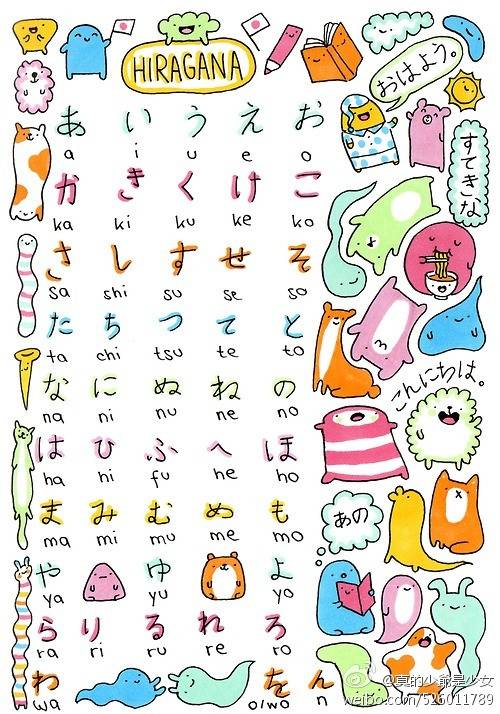 HIRAGANA
おはよう。
すてきな
あ い う え お
a i u e o
か き く け こ
ka ki ku ke ko
さ し す せ そ
sa shi su se so
た ち つ て と
ta chi tsu te to
な に ぬ ね の
na ni nu ne no
は ひ ふ へ ほ
ha hi fu he ho
ま み む め も
ma mi mu me mo
や ゆ よ
ya yu yo
ら り る れ ろ
ra ri ru re ro
わ を ん
wa o/wo n
こんにちは。
あの
@真的少爺是少女
weibo.com/526011789